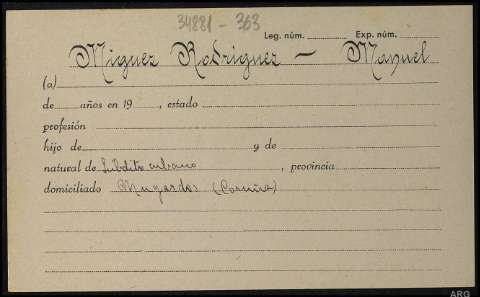 34881 - 363
Leg. núm. Exp. núm.
Miguez Rodriguez — Manuel
(a)
de años en 19 , estado
profesión
hijo de y de
natural de Subdito cubano , provincia
domiciliado Mugardos (Coruña)
ARG